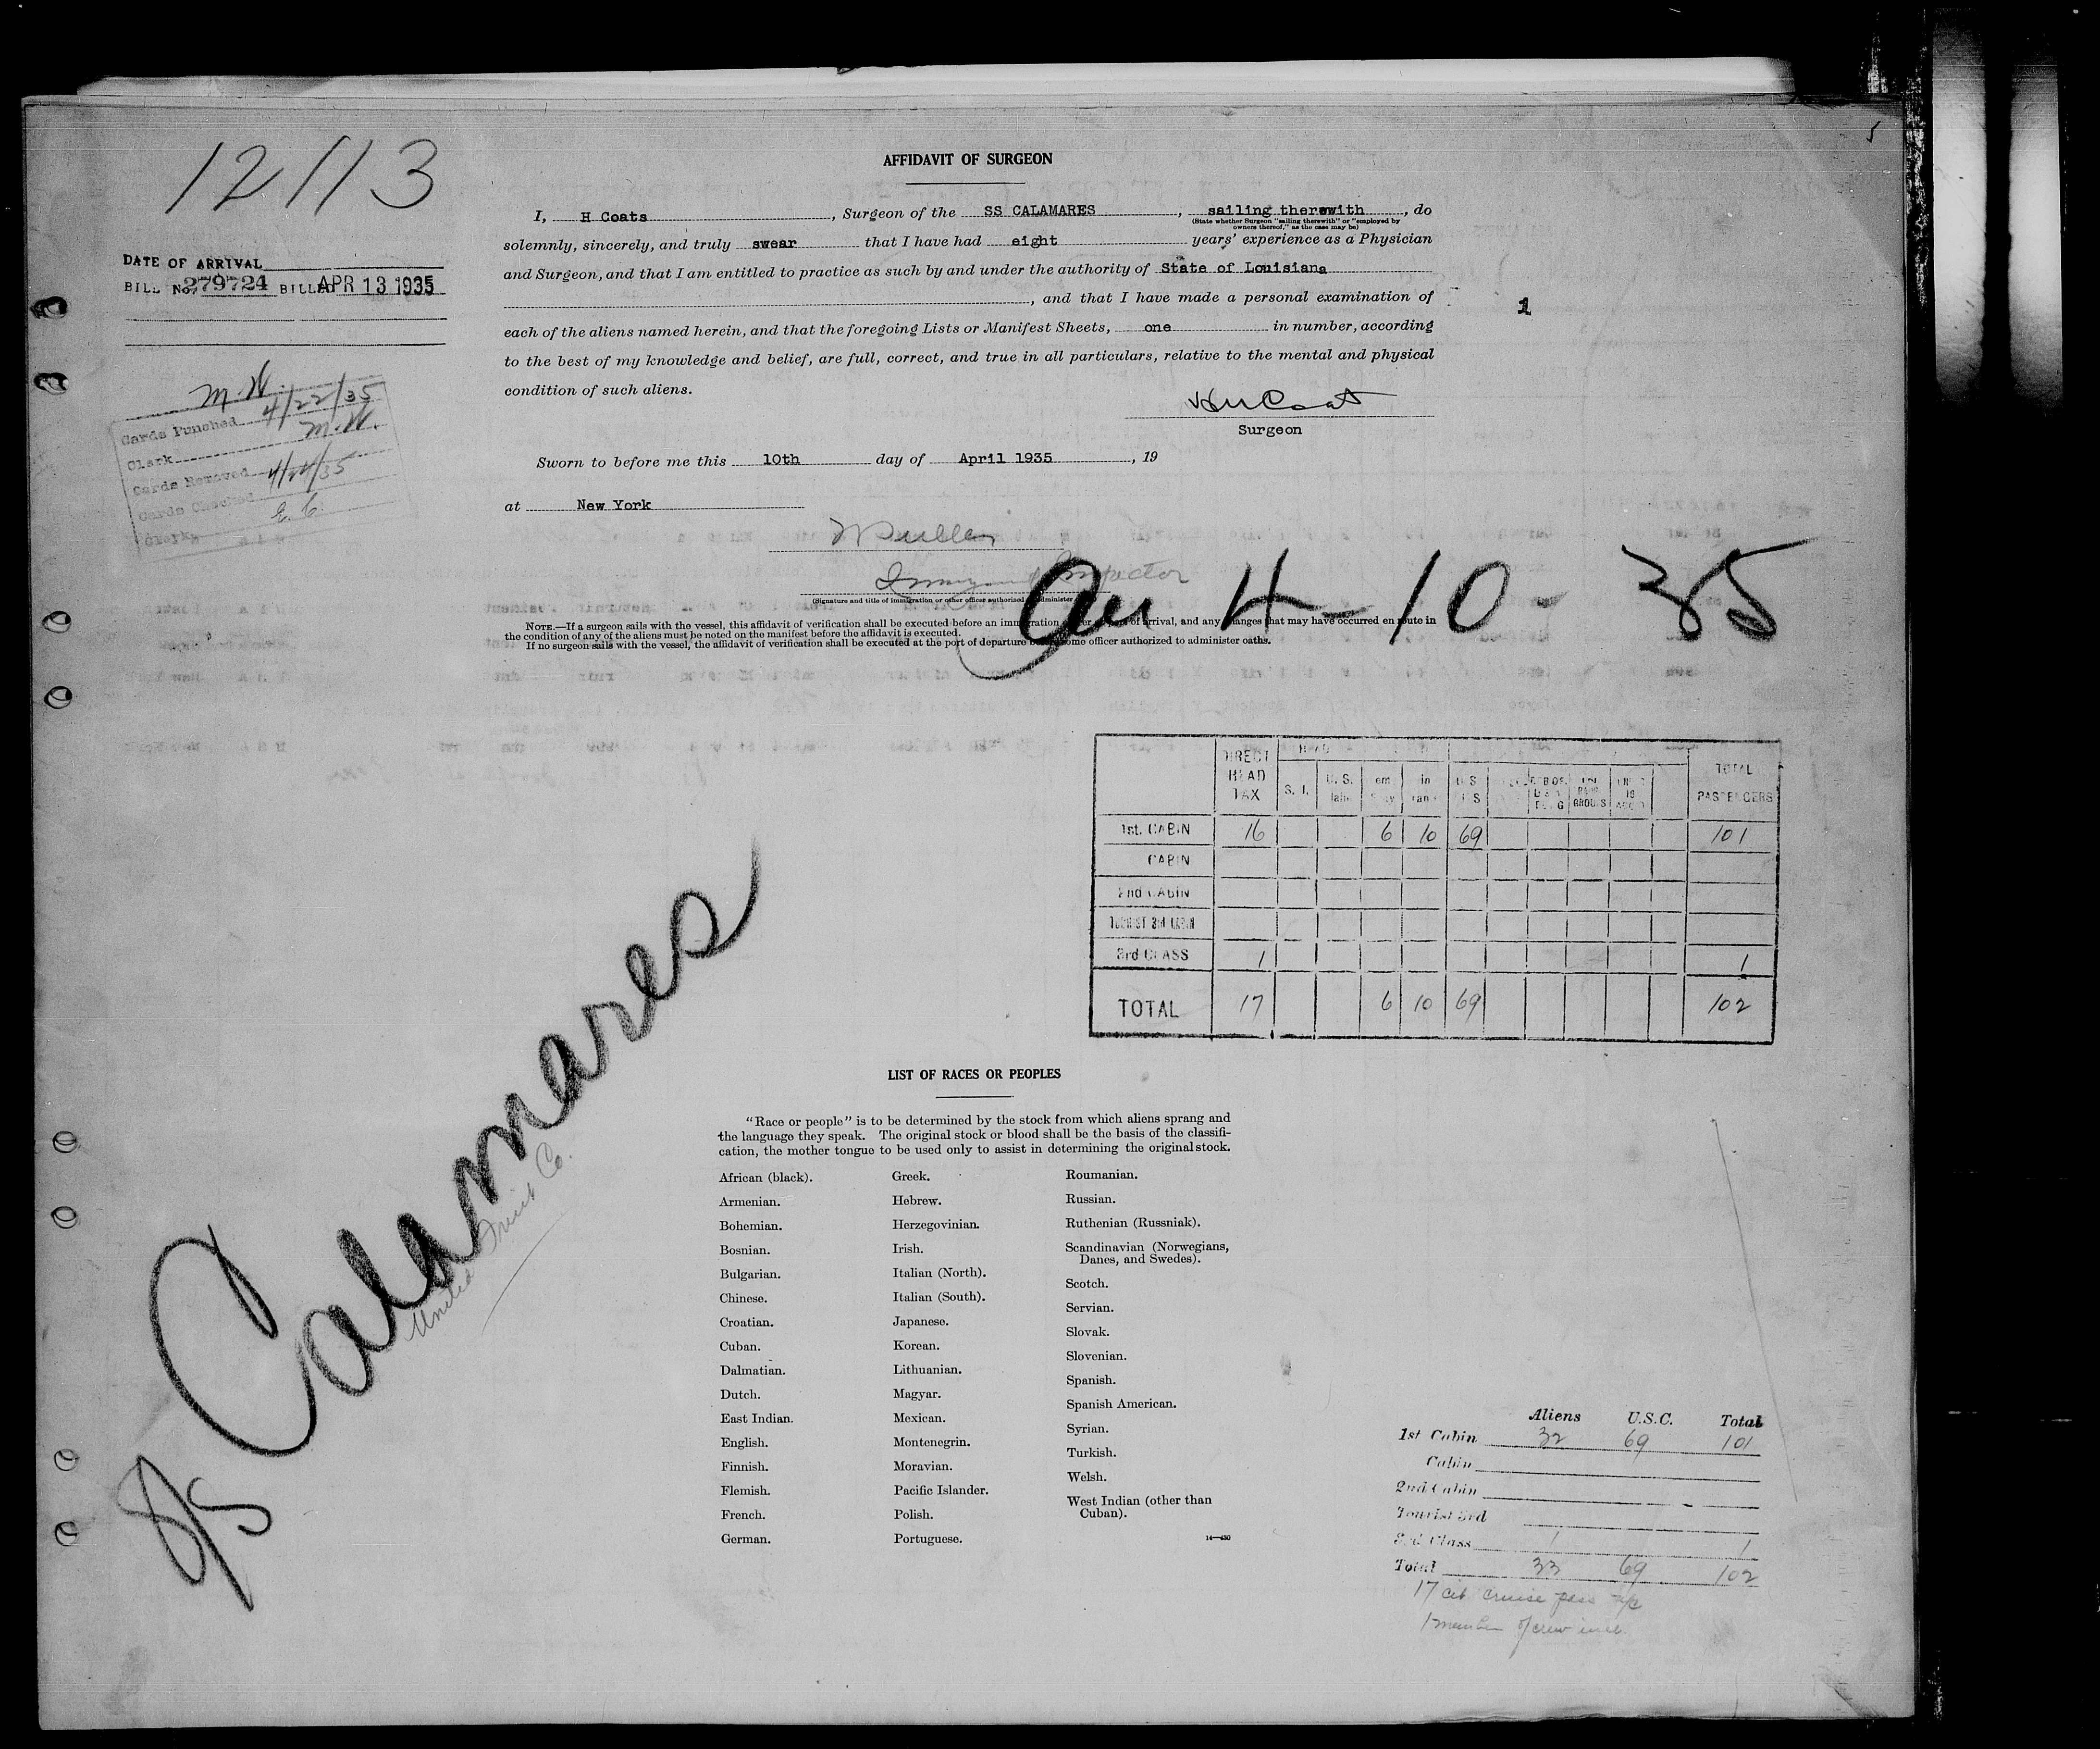 12113
5
AFFIDAVIT OF SURGEON
I, H Coats, Surgeon of the SS CALAMARES, sailing therewith, do
(State whether Surgeon "sailing therewith" or "employed by
owners thereof," as the case may be)
solemnly, sincerely, and truly swear that I have had eight years' experience as a Physician
and Surgeon, and that I am entitled to practice as such by and under the authority of State of Louisiana
, and that I have made a personal examination of
1
each of the aliens named herein, and that the foregoing Lists or Manifest Sheets, one in number, according
to the best of my knowledge and belief, are full, correct, and true in all particulars, relative to the mental and physical
condition of such aliens.
Surgeon
Sworn to before me this 10th day of April 1935, 19
at New York
(Signature and title of immigration or other officer authorized administer
NOTE.—If a surgeon sails with the vessel, this affidavit of verification shall be executed before an immigration of arrival, and any changes that may have occurred en route in
the condition of any of the aliens must be noted on the manifest before the affidavit is executed.
If no surgeon sails with the vessel, the affidavit of verification shall be executed at the port of departure some officer authorized to administer oaths.
DATE OF ARRIVAL
BILL No. 279724 BILLED APR 13 1935
M.W.
Cards Punched 4/22/35
Clerk M.W.
Cards Removed 4/24/35
Cards Checked
Clerk
4-10-35
DIRECT HEAD TAX S. I. U.S. TOTAL PASSENGERS
1st. CABIN 16 6 10 69 101
CABIN
2nd CABIN
TOURIST 3rd CABIN
3rd CLASS 1 1
TOTAL 17 6 10 69 102
S/S Calamares
United Fruit Co.
LIST OF RACES OR PEOPLES
"Race or people" is to be determined by the stock from which aliens sprang and
the language they speak. The original stock or blood shall be the basis of the classifi-
cation, the mother tongue to be used only to assist in determining the original stock.
African (black).
Armenian.
Bohemian.
Bosnian.
Bulgarian.
Chinese.
Croatian.
Cuban.
Dalmatian.
Dutch.
East Indian.
English.
Finnish.
Flemish.
French.
German.
Greek.
Hebrew.
Herzegovinian.
Irish.
Italian (North).
Italian (South).
Japanese.
Korean.
Lithuanian.
Magyar.
Mexican.
Montenegrin.
Moravian.
Pacific Islander.
Polish.
Portuguese.
Roumanian.
Russian.
Ruthenian (Russniak).
Scandinavian (Norwegians,
Danes, and Swedes).
Scotch.
Servian.
Slovak.
Slovenian.
Spanish.
Spanish American.
Syrian.
Turkish.
Welsh.
West Indian (other than
Cuban).
Aliens U.S.C. Total
1st Cabin 32 69 101
Cabin
2nd Cabin
Tourist 3rd
3rd Class 1 1
Total 33 69 102
17 cit cruise pass
1 member of crew incl.